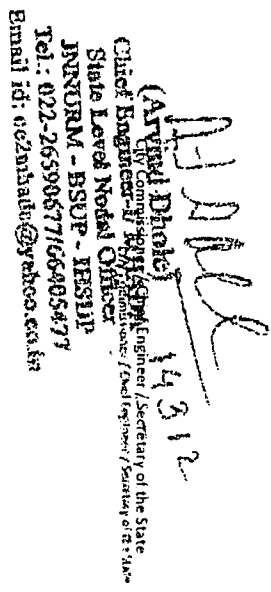 14312
(Arvind Dhole)
City Commissioner / Chief Engineer / Secretary of the State
Chief Engineer-I
State Level Nodal Officer
JNNURM - BSUP - IHSDP
Tel.: 022-26590677/66405477
Email id: ce2mhada@yahoo.co.in